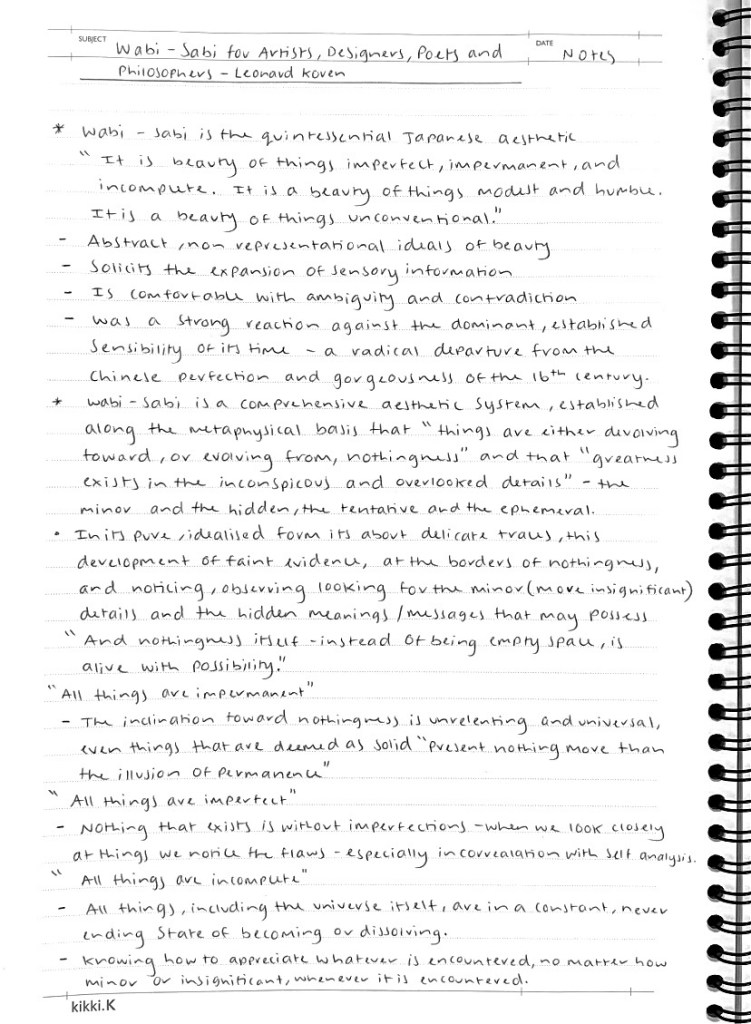 SUBJECT
Wabi - Sabi for Artists, Designers, Poets and
DATE
Notes
Philosophers - Leonard Koren
* Wabi - sabi is the quintessential Japanese aesthetic
"It is beauty of things imperfect, impermanent, and
incomplete. It is a beauty of things modest and humble.
It is a beauty of things unconventional."
- Abstract, non representational ideals of beauty
- Solicits the expansion of sensory information
- Is comfortable with ambiguity and contradiction
- was a strong reaction against the dominant, established
sensibility of its time - a radical departure from the
Chinese perfection and gorgeousness of the 16th century.
* wabi-sabi is a comprehensive aesthetic system, established
along the metaphysical basis that "things are either devolving
toward, or evolving from, nothingness" and that "greatness
exists in the inconspicous and overlooked details" - the
minor and the hidden, the tentative and the ephemeral.
• In its pure, idealised form its about delicate traus, this
development of faint evidence, at the borders of nothingness,
and noticing, observing looking for the minor (more insignificant)
details and the hidden meanings/messages that may possess
"And nothingness itself - instead of being empty space, is
alive with possibility."
"All things are impermanent"
- The inclination toward nothingness is unrelenting and universal,
even things that are deemed as solid "present nothing more than
the illusion of permanence"
"All things are imperfect"
- Nothing that exists is without imperfections - when we look closely
at things we notice the flaws - especially in correalation with self analysis.
"All things are incomplete"
- All things, including the universe itself, are in a constant, never
ending state of becoming or dissolving.
- knowing how to appreciate whatever is encountered, no matter how
minor or insignificant, whenever it is encountered.
kikki.K